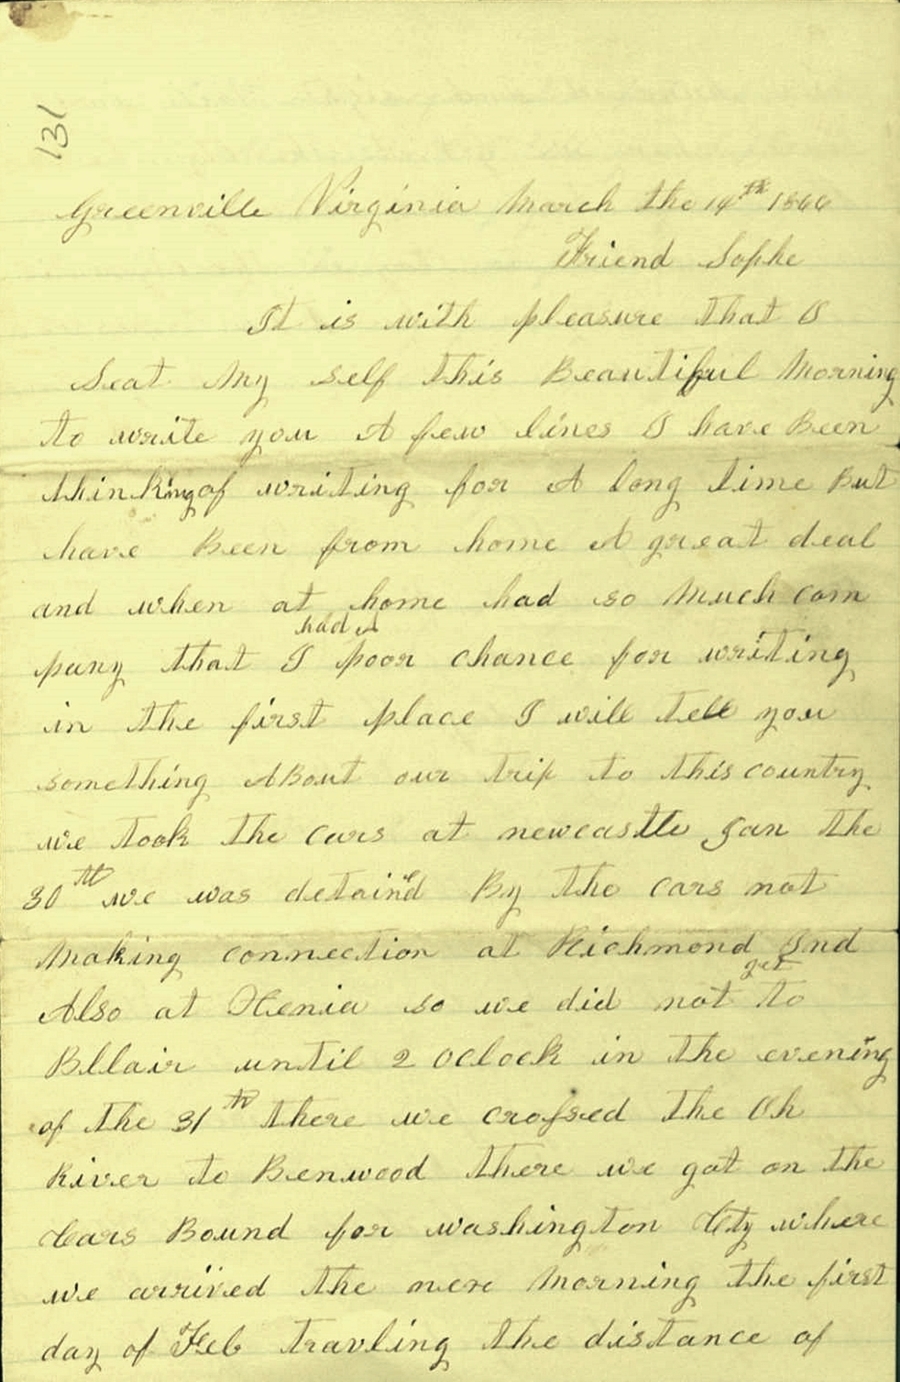 131
Greenville Virginia March the 14th 1866
Friend Sophe
It is with pleasure that I
Seat My self this Beautiful Morning
to write you A few lines I have Been
thinking of writing for A long time But
have Been from home A great deal
and when at home had so Much com
had A
pany that I poor chance for writing
in the first place I will tell you
something ABout our trip to this country
we took the cars at newcastle Jan the
30th we was detained By the cars not
Making connection at Richmond Ind
get
Also at Xenia so we did not to
Bllair until 2 oclock in the evening
of the 31th there we crossed the Oh
River to Benwood there we got on the
Cars Bound for washington City where
we arrived the nex Morning the first
day of Feb travling the distance of